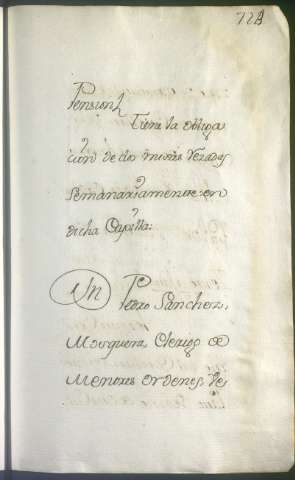 Pension
Tiene la obliga
cion de dos misas rezadas
semanariamente en
dicha Capilla.
Dn Pedro Sanchez,
Mosquera, Clerigo de
Menores ordenes, de